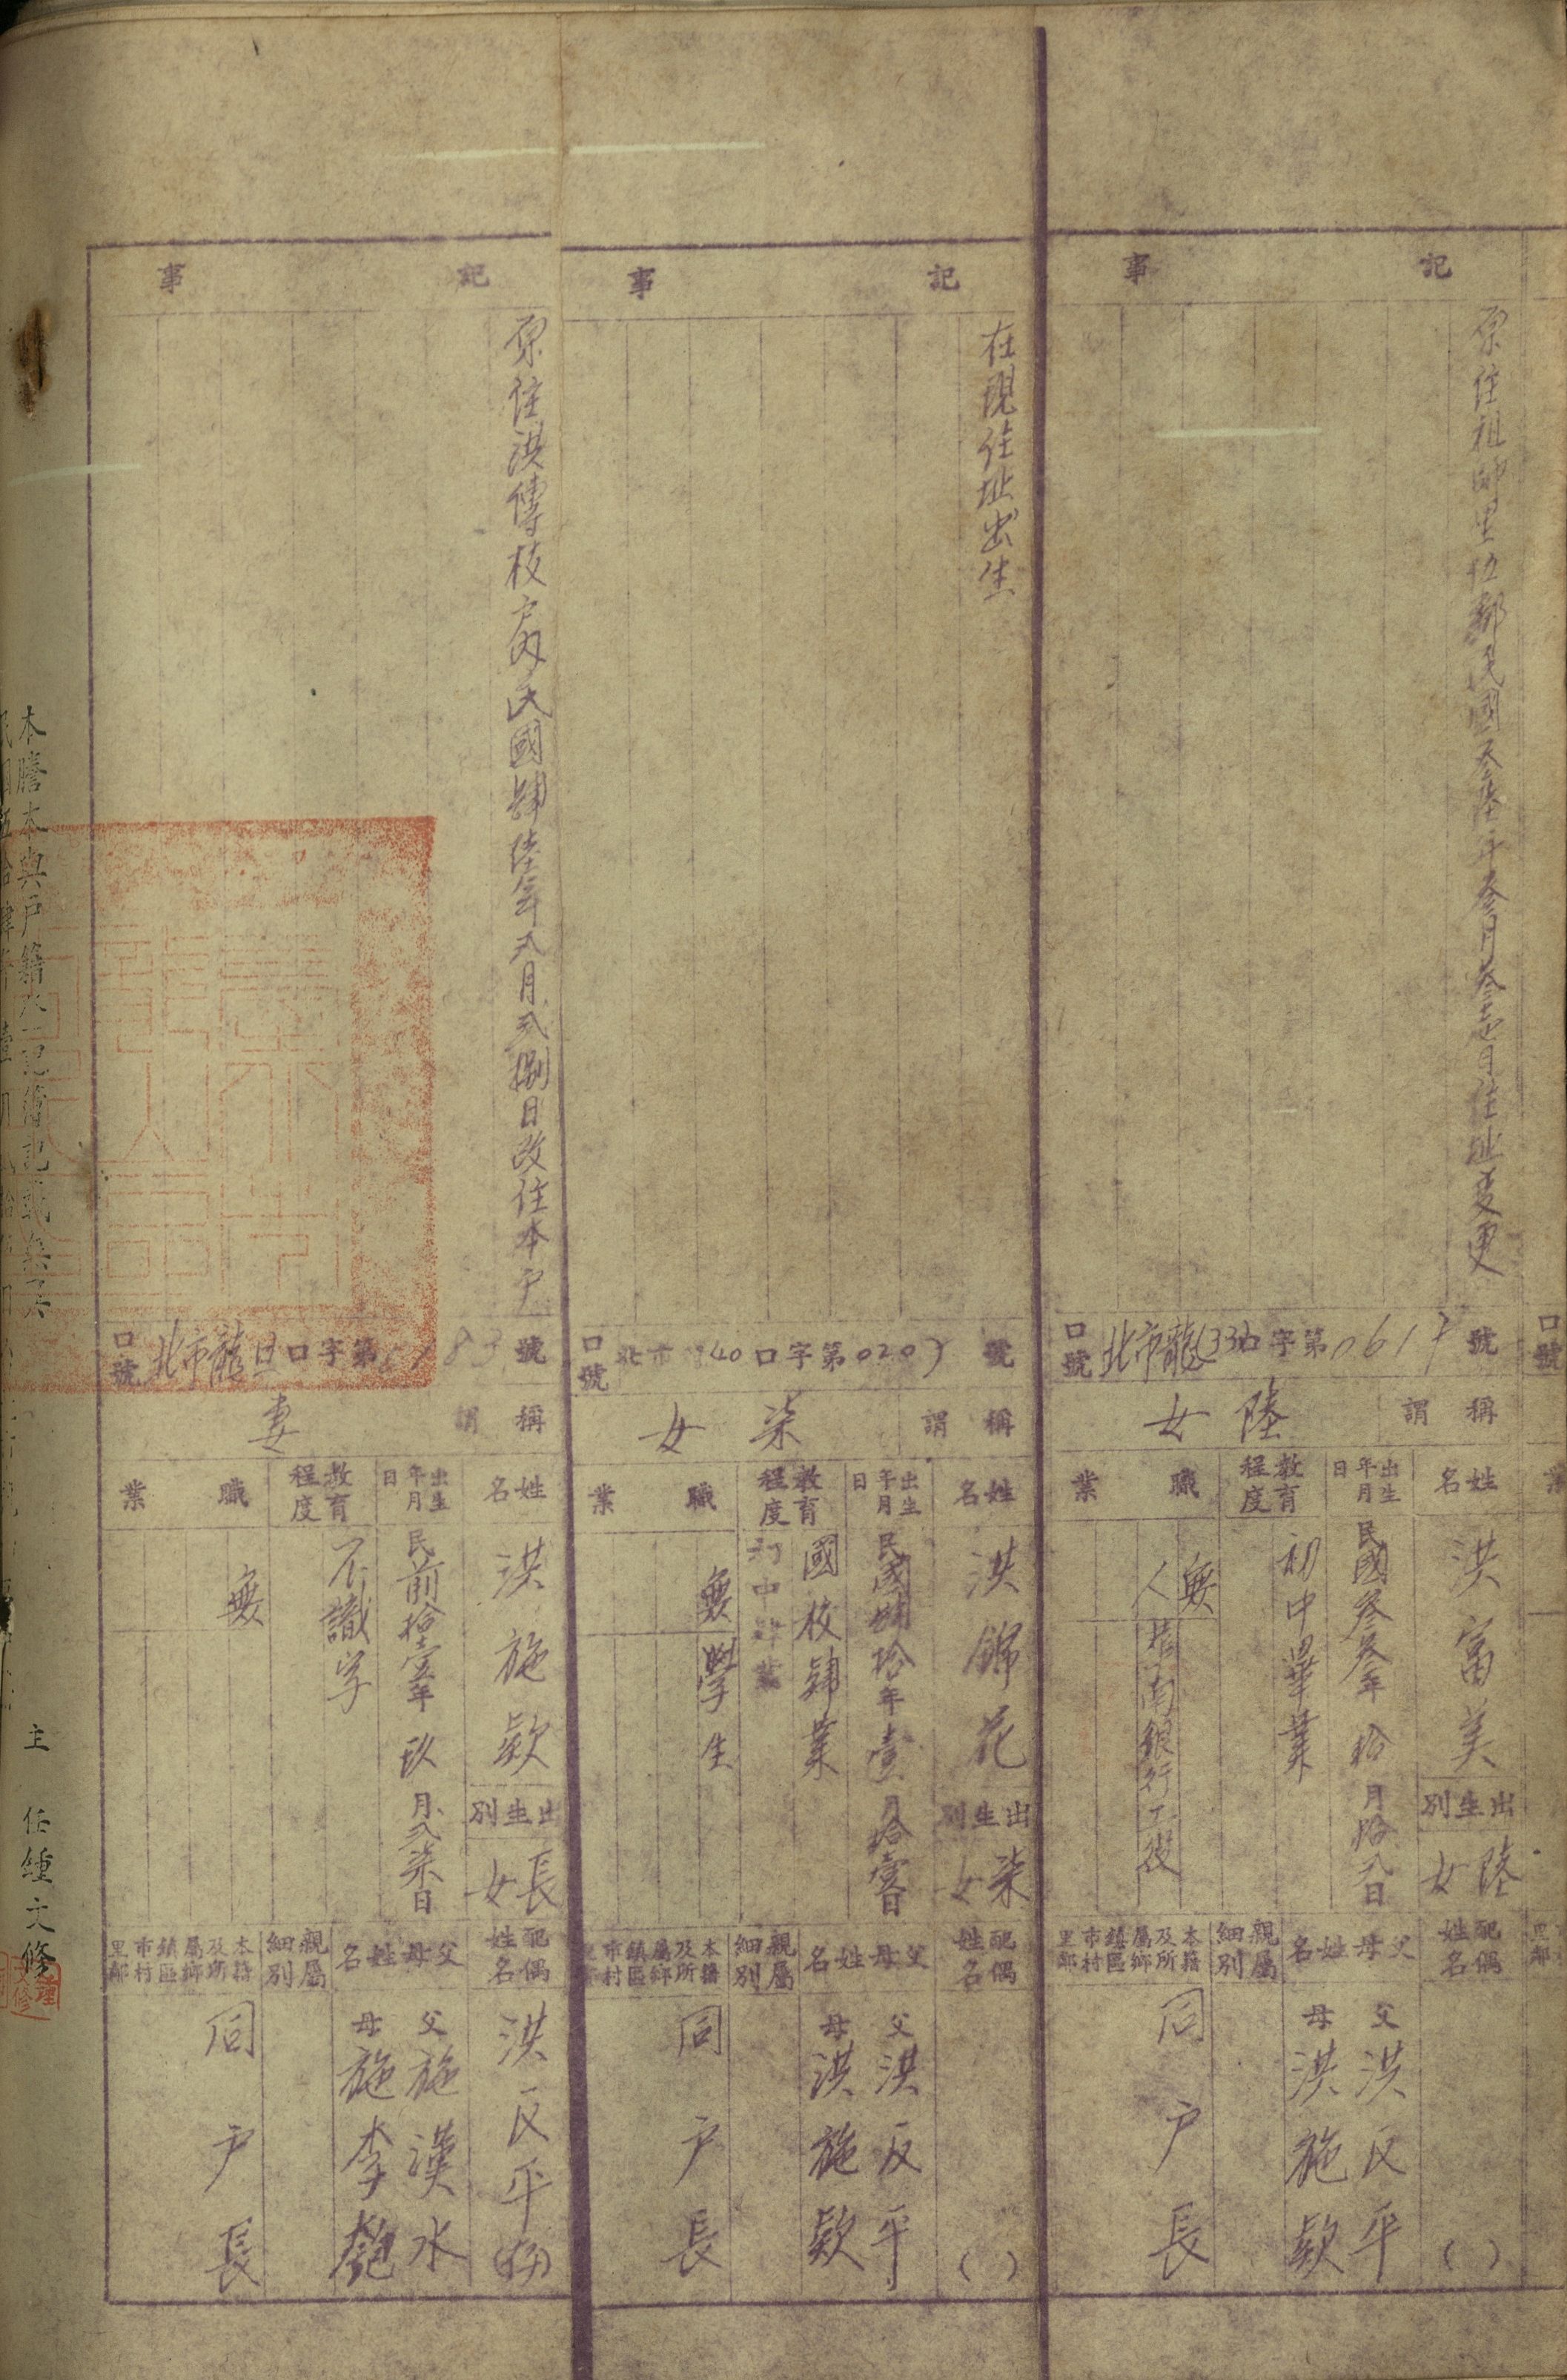 記事
原住祖師里伍鄰民國叁陸年叁月叁壱日住址變更
口號 北市龍(33)口字第061 號
稱謂 陸女
姓名 洪富美
出生別 陸女
出生年月日 民國叁叁年拾月拾八日
教育程度 初中畢業
職業 無
人
南銀行工役
配偶姓名 ( )
父母姓名 父洪反平
母洪施欵
親屬細別
本籍及所屬鄉鎮區市村里鄰 同戶長
記事
在現住址出生
口號 北市 40口字第020 號
稱謂 柒女
姓名 洪錦花
出生別 柒女
出生年月日 民國肆拾年壹月拾壹日
教育程度 國校肄業
初中肄業
職業 無
學生
配偶姓名 ( )
父母姓名 父洪反平
母洪施欵
親屬細別
本籍及所屬鄉鎮區市村里鄰 同戶長
記事
原住洪傳枝戶內民國肆陸年弍月弍捌日改住本戶
口號 北市龍旦口字第 83號
稱謂 妻
姓名 洪施欵
出生別 長女
出生年月日 民前拾壹年玖月弍柒日
教育程度 不識字
職業 無
配偶姓名 洪反平
父母姓名 父施漢水
母施李
親屬細別
本籍及所屬鄉鎮區市村里鄰 同戶長
本謄本與戶籍登記簿記載無異
主任鍾文修